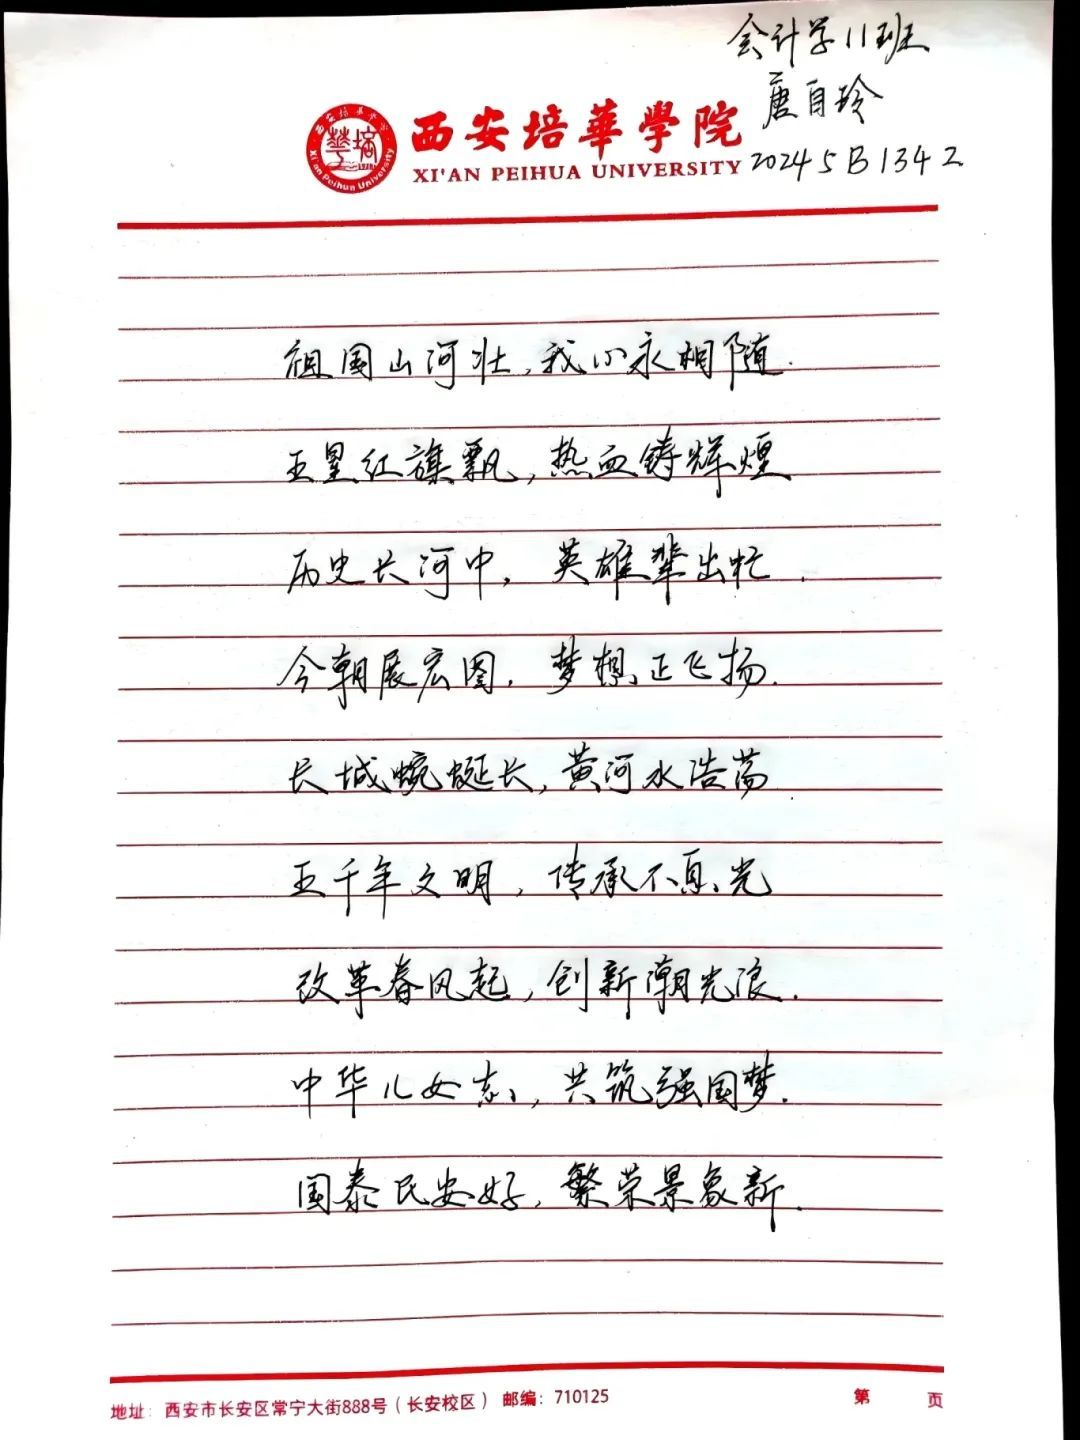 会计学11班
唐自玲
西安培華學院
XI'AN PEIHUA UNIVERSITY
20245B1342
西安培華學院
Xi'an Peihua University
祖国山河壮,我心永相随.
五星红旗飘,热血铸辉煌
历史长河中,英雄辈出忙.
今朝展宏图,梦想正飞扬.
长城蜿蜒长,黄河水浩荡.
五千年文明,传承不息光
改革春风起,创新潮光浪.
中华儿女志,共筑强国梦.
国泰民安好,繁荣景象新.
地址:西安市长安区常宁大街888号(长安校区) 邮编:710125 第 页